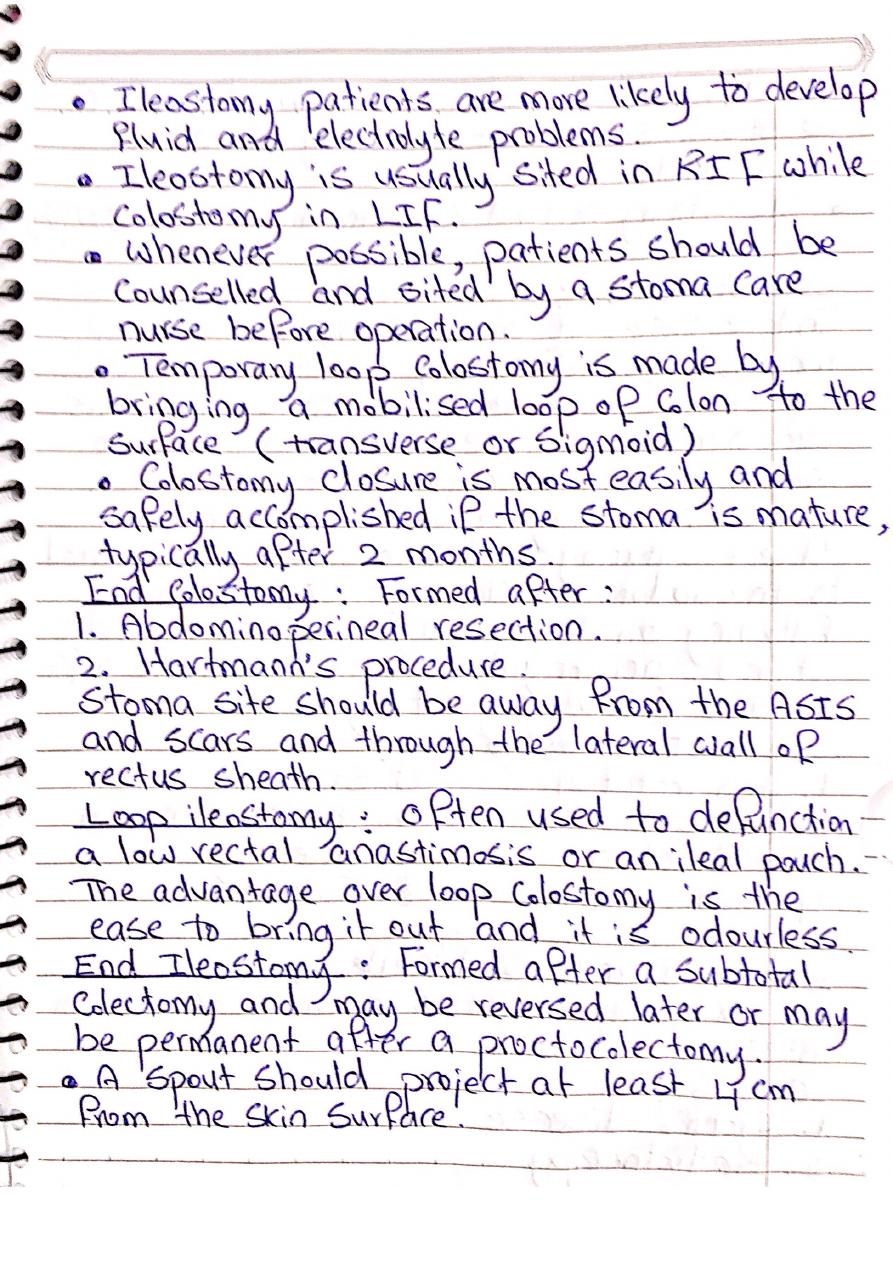 • Ileostomy patients are more likely to develop
fluid and electrolyte problems.
• Ileostomy is usually sited in RIF while
Colostomy in LIF.
• Whenever possible, patients should be
Counselled and sited by a stoma Care
nurse before operation.
• Temporary loop Colostomy is made by
bringing a mobilised loop of Colon to the
surface (transverse or Sigmoid)
• Colostomy closure is most easily and
safely accomplished if the stoma is mature,
typically after 2 months.
End Colostomy : Formed after :
1. Abdominoperineal resection.
2. Hartmann's procedure.
Stoma site should be away from the ASIS
and scars and through the lateral wall of
rectus sheath.
Loop ileostomy : Often used to defunction
a low rectal anastimosis or an ileal pouch.
The advantage over loop Colostomy is the
ease to bring it out and it is odourless
End Ileostomy : Formed after a Subtotal
Colectomy and may be reversed later or may
be permanent after a proctocolectomy.
• A spout should project at least 4 cm
from the skin surface.